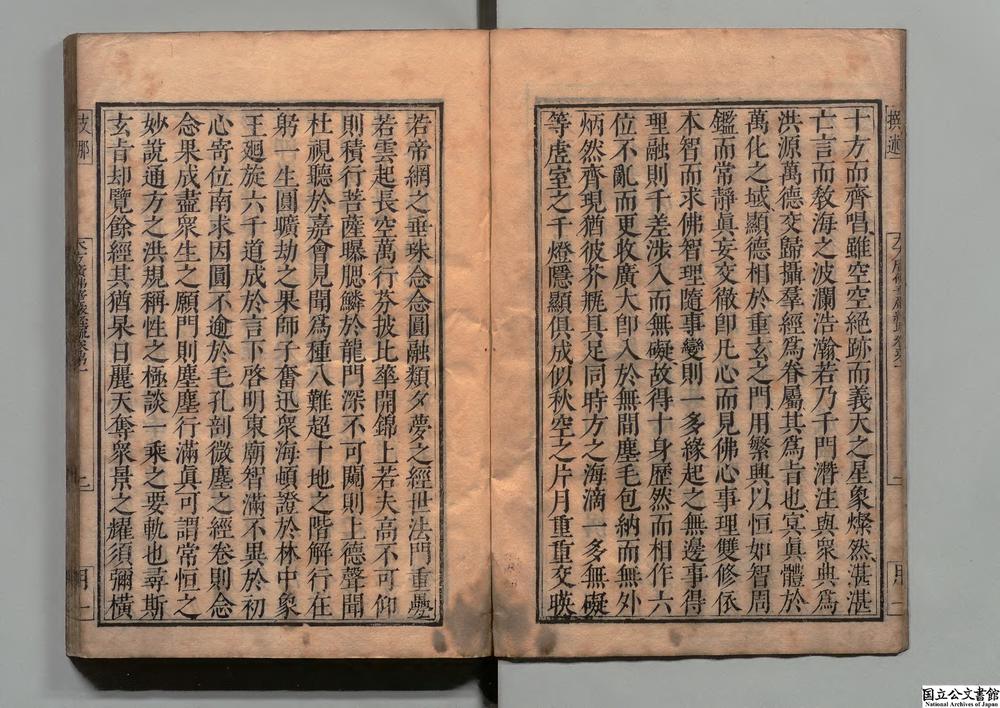 十方而齊唱雖空空絕跡而義天之星象燦然湛湛
亡言而教海之波瀾浩瀚若乃千門潛注與衆典爲
洪源萬德交歸攝羣經爲眷屬其爲旨也冥眞體於
萬化之域顯德相於重玄之門用繁興以恒如智周
鑑而常靜眞妄交徹卽凡心而見佛心事理雙修依
本智而求佛智理隨事變則一多緣起之無邊事得
理融則千差涉入而無礙故得十身歷然而相作六
位不亂而更收廣大卽入於無間塵毛包納而無外
炳然齊現猶彼芥甁具足同時方之海滴一多無礙
等虛室之千燈隱顯俱成似秋空之片月重重交映
若帝網之垂珠念念圓融類夕夢之經世法門重疊
若雲起長空萬行芬披比華開錦上若夫高不可仰
則積行菩薩曝腮鱗於龍門深不可闚則上德聲聞
杜視聽於嘉會見聞爲種八難超十地之階解行在
躬一生圓曠劫之果師子奮迅衆海頓證於林中象
王廻旋六千道成於言下啓明東廟智滿不異於初
心寄位南求因圓不逾於毛孔剖微塵之經卷則念
念果成盡衆生之願門則塵塵行滿眞可謂常恒之
妙說通方之洪規稱性之極談一乘之要軌也尋斯
玄旨却覽餘經其猶杲日麗天奪衆景之耀須彌橫
国立公文書館
National Archives of Japan